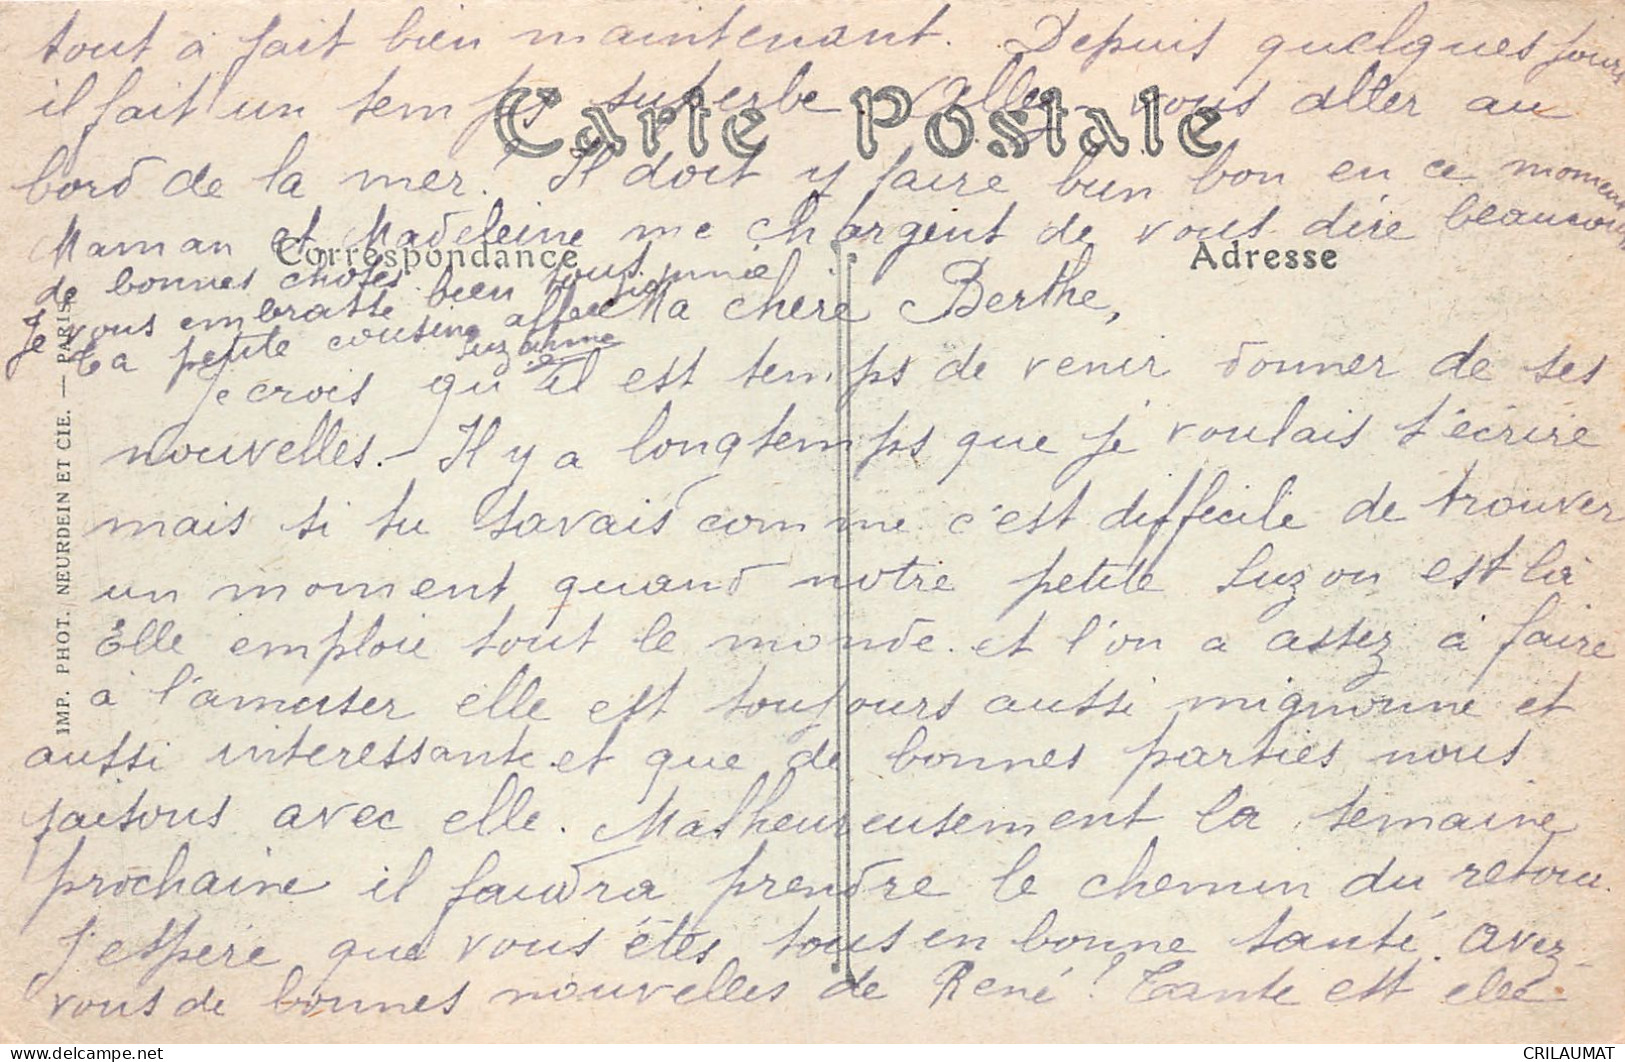 tout à fait bien maintenant. Depuis quelques jours
il fait un temps superbe. Allez-vous aller au
Carte Postale
bord de la mer! Il doit y faire bien bon en ce moment
Maman et Madeleine me chargent de vous dire beaucoup
Correspondance
Adresse
de bonnes choses.
Je vous embrasse bien tous.
ta petite cousine
Suzanne
Ma chère Berthe,
Je crois qu'il est temps de venir donner de ses
nouvelles. - Il y a longtemps que je voulais t'écrire
mais si tu savais comme c'est difficile de trouver
un moment quand notre petite Suzon est là
Elle emploie tout le monde et l'on a assez à faire
à l'amuser elle est toujours aussi mignonne et
aussi interessante et que de bonnes parties nous
faisons avec elle. Malheureusement la semaine
prochaine il faudra prendre le chemin du retour.
J'espère que vous êtes tous en bonne santé. Avez-
vous de bonnes nouvelles de René! Tante est elle
IMP. PHOT. NEURDEIN ET CIE. — PARIS.
CRILAUMAT
delcampe.net